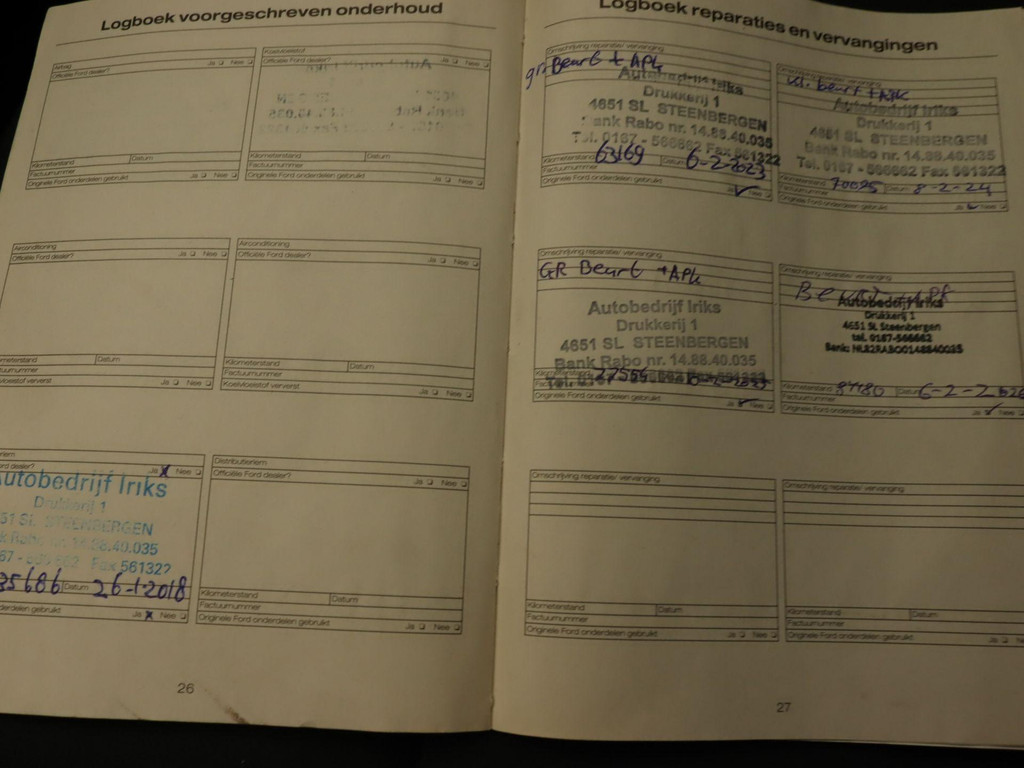 Logboek voorgeschreven onderhoud
Airbag
Officiële Ford dealer? Ja Nee
Kilometerstand Datum
Factuurnummer
Originele Ford onderdelen gebruikt Ja Nee
Koelvloeistof
Officiële Ford dealer? Ja Nee
Kilometerstand Datum
Factuurnummer
Originele Ford onderdelen gebruikt Ja Nee
Airconditioning
Officiële Ford dealer? Ja Nee
Datum
Ja Nee
Airconditioning
Officiële Ford dealer? Ja Nee
Kilometerstand Datum
Factuurnummer
Koelvloeistof ververst Ja Nee
Ja Nee
Autobedrijf Iriks
Drukkerij 1
51 SL STEENBERGEN
Rabo nr. 14.88.40.035
Fax 561322
35686 Datum 26-1-2018
gebruikt Ja Nee
Distributieriem
Officiële Ford dealer? Ja Nee
Kilometerstand Datum
Factuurnummer
Originele Ford onderdelen gebruikt Ja Nee
26
Logboek reparaties en vervangingen
Omschrijving reparatie/ vervanging
gr Beurt + APK
Autobedrijf Iriks
Drukkerij 1
4651 SL STEENBERGEN
Bank Rabo nr. 14.88.40.035
Tel. 0167 - 566662 Fax 561322
Kilometerstand 63169 Datum 6-2-2023
Factuurnummer
Originele Ford onderdelen gebruikt Ja Nee
Omschrijving reparatie/ vervanging
kl. beurt + APK
Autobedrijf Iriks
Drukkerij 1
4651 SL STEENBERGEN
Bank Rabo nr. 14.88.40.035
Tel. 0167 - 566662 Fax 561322
Kilometerstand Datum 8-2-24
Factuurnummer
Originele Ford onderdelen gebruikt Ja Nee
Omschrijving reparatie/ vervanging
GR Beurt + APK
Autobedrijf Iriks
Drukkerij 1
4651 SL STEENBERGEN
Bank Rabo nr. 14.88.40.035
Originele Ford onderdelen gebruikt Ja Nee
Omschrijving reparatie/ vervanging
Beurt APK
Autobedrijf Iriks
Drukkerij 1
4651 SL Steenbergen
tel. 0167-566662
Bank: NL82RABO0148840035
Kilometerstand Datum 6-2-2026
Factuurnummer
Originele Ford onderdelen gebruikt Ja Nee
Omschrijving reparatie/ vervanging
Kilometerstand Datum
Factuurnummer
Originele Ford onderdelen gebruikt Ja Nee
Omschrijving reparatie/ vervanging
Kilometerstand Datum
Factuurnummer
Originele Ford onderdelen gebruikt Ja
27